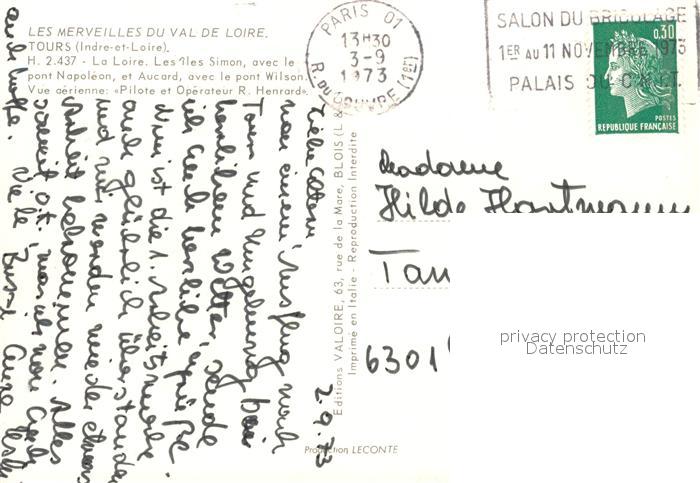 LES MERVEILLES DU VAL DE LOIRE.
TOURS (Indre-et-Loire).
H. 2.437 - La Loire. Les Iles Simon, avec le
pont Napoléon, et Aucard, avec le pont Wilson.
Vue aérienne: «Pilote et Opérateur R. Henrard».
PARIS 01
13H30
3-9
1973
R. DU LOUVRE (1er)
SALON DU BRICOLAGE
1ER AU 11 NOVEMBRE 1973
PALAIS DU C.N.I.T.
0,30
POSTES
REPUBLIQUE FRANÇAISE
2.9.73
Liebe
von einem Ausflug nach
Tours und Umgebung bei
herrlichem Wetter, sende
ich Euch herzliche Grüße.
Nun ist die 1. Arbeitswoche
auch glücklich überstanden
und wir werden wieder etwas
Arbeit bekommen. Alles
soweit o.k., was ich von Euch
auch hoffe. Viele Bussi Eure
Editions VALOIRE, 63, rue de la Mare, BLOIS (L &
Imprimé en Italie - Reproduction Interdite
Production LECONTE
Madame
Hilde Hartmann
Tau
6301
privacy protection
Datenschutz